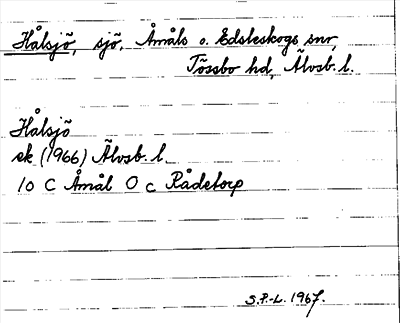 Hålsjö, sjö, Åmåls o. Edsleskogs snr,
Tössbo hd, Älvsb. l.
Hålsjö
ek (1966) Älvsb. l.
10 C Åmål O c Rådetorp
S.P.-L. 1967.